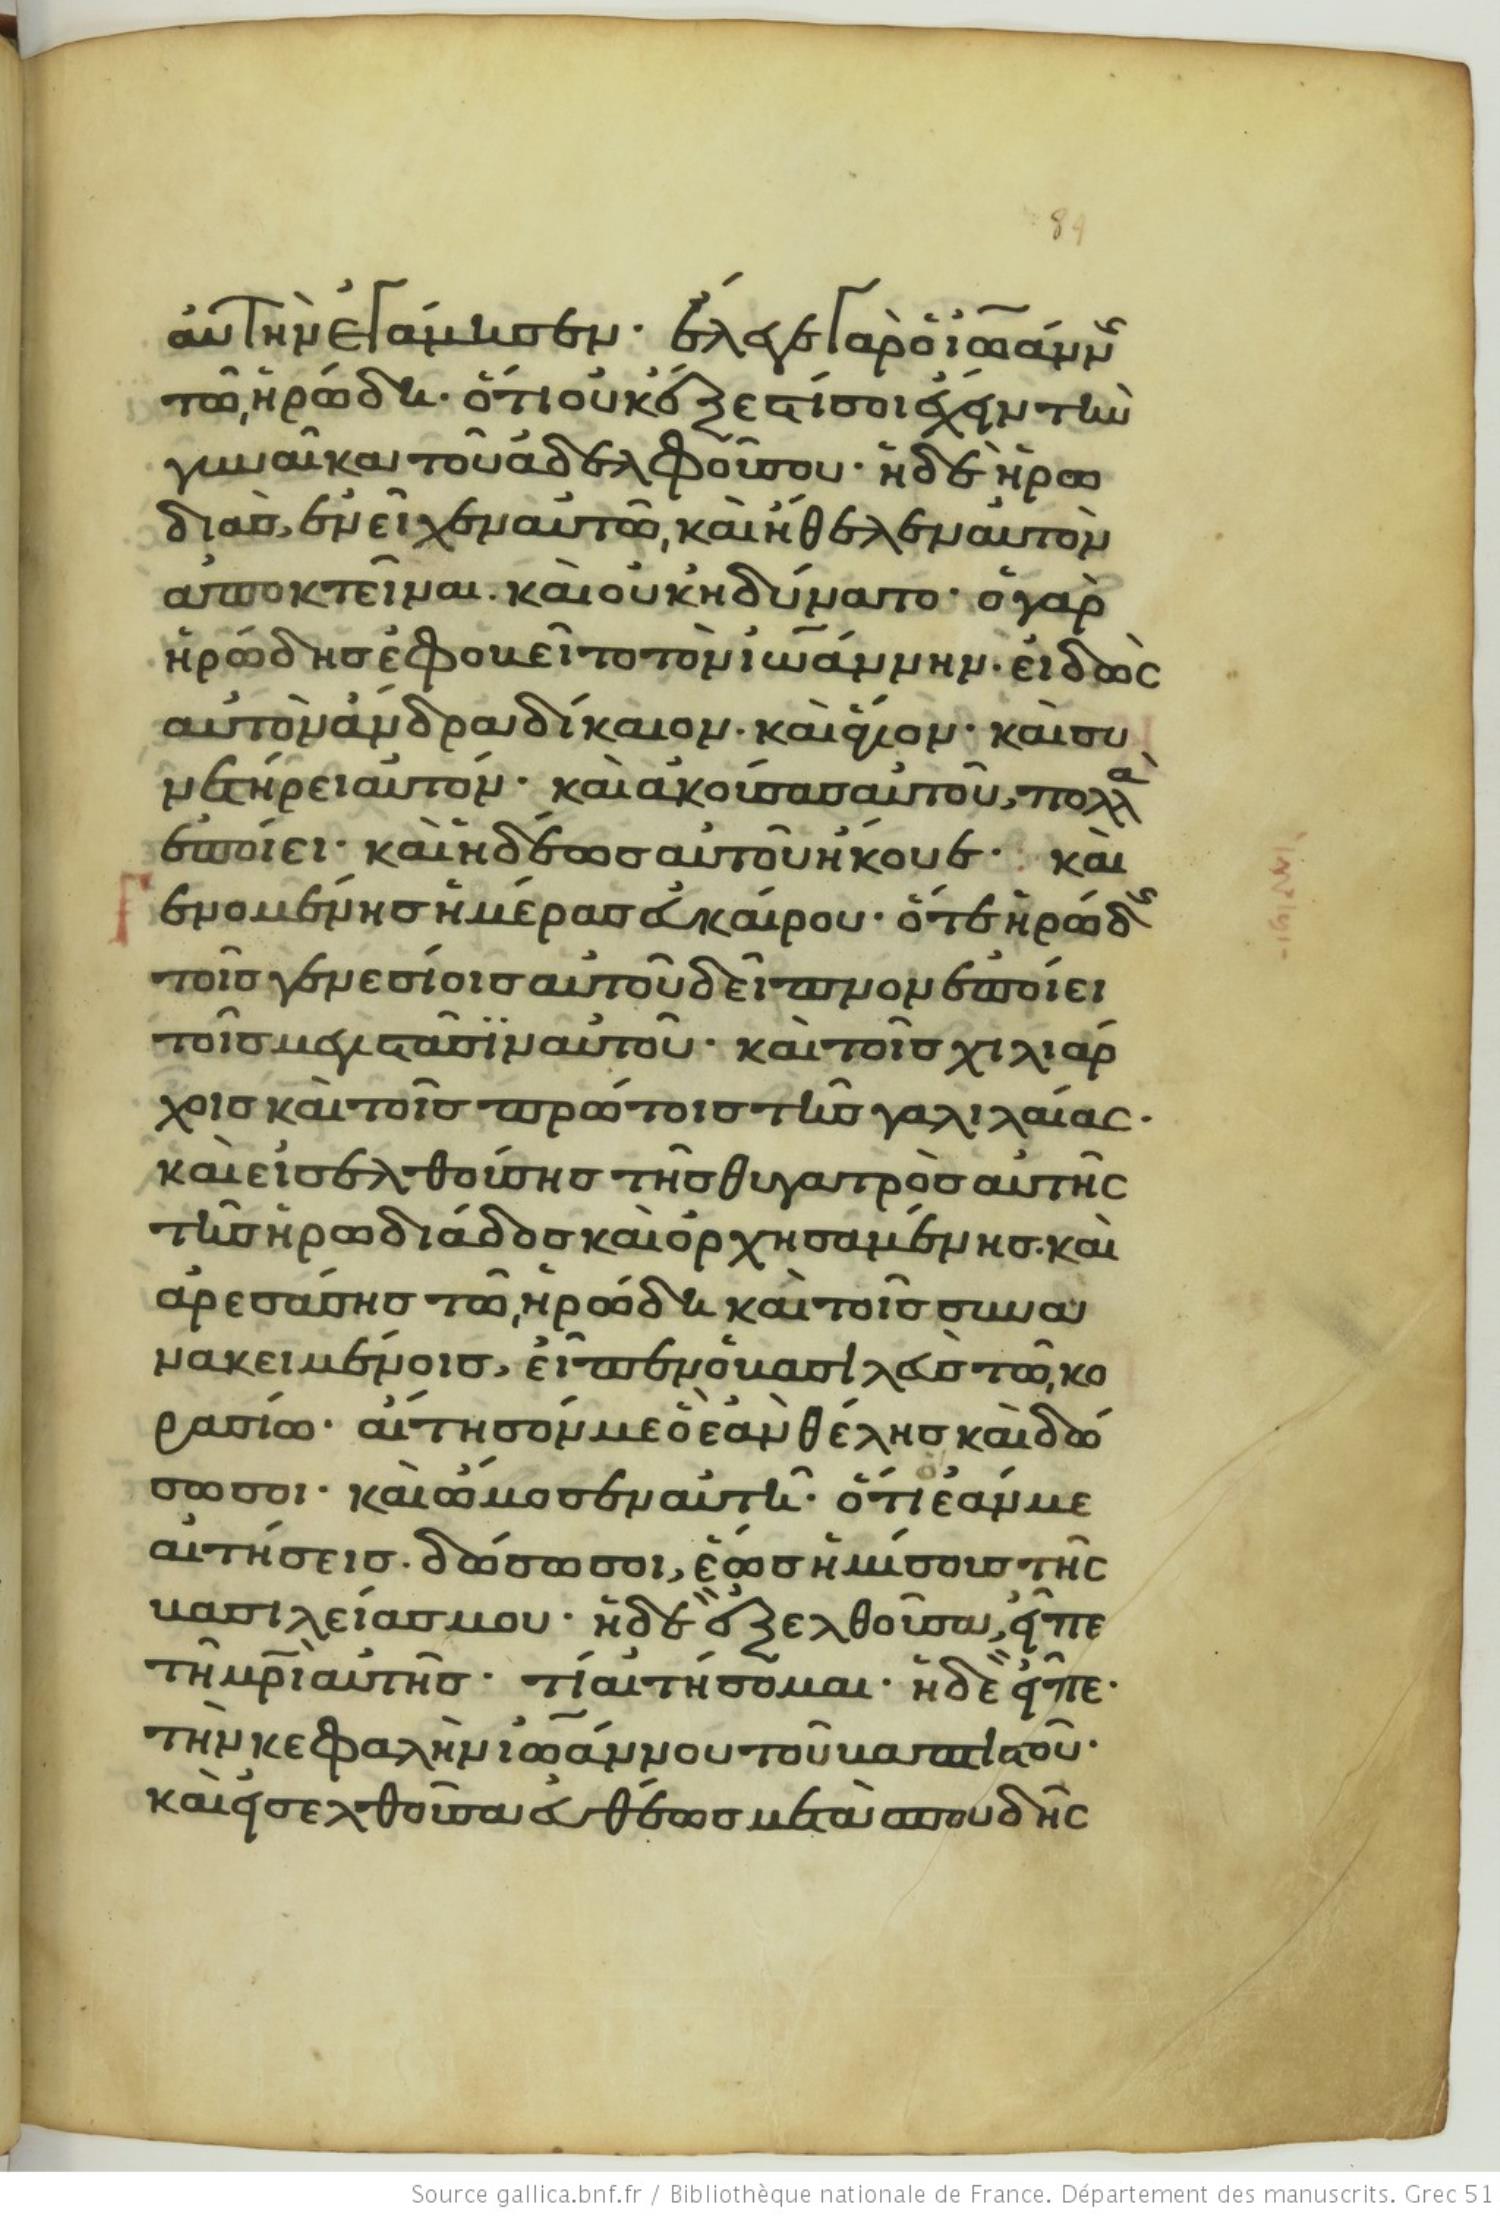 84
αὐτὴν ἐγάμησεν· ἔλεγε γὰρ ὁ ἰωάνν(ης)
τῶ, ἡρώδη· ὅτι οὐκ ἔξεστί σοι ἔχειν τὴν
γυναῖκα τοῦ ἀδελφοῦ σου· ἡ δὲ ἡρω
διὰς, ἐνεῖχεν αὐτῶ, καὶ ἤθελεν αὐτὸν
ἀποκτεῖναι. καὶ οὐκ ἠδύνατο· ὁ γὰρ
ἡρώδης ἐφοβεῖτο τὸν ἰωάννην· εἰδὼς
αὐτὸν ἄνδρα δίκαιον· καὶ ἅγιον· καὶ συ
νετήρει αὐτόν· καὶ ἀκούσας αὐτοῦ, πολλὰ
ἐποίει· καὶ ἡδέως αὐτοῦ ἤκουε· καὶ
ενομένης ἡμέρας εὐκαίρου· ὅτε ἡρώδ(ης)
τοῖς γενεσίοις αὐτοῦ δεῖπνον ἐποίει
τοῖς μεγιστᾶσϊν αὐτοῦ· καὶ τοῖς χιλιάρ
χοις καὶ τοῖς πρώτοις τῆς γαλιλαίας·
καὶ εἰσελθούσης τῆς θυγατρὸς αὐτῆς
τῆς ἡρωδιάδος καὶ ὀρχησαμένης· καὶ
ἀρεσάσης τῶ, ἡρώδη καὶ τοῖς συνα
νακειμένοις, εἶπεν ὁ βασιλεὺς τῶ, κο
ρασίω· αἴτησόν με ὃ ἐὰν θέλης καὶ δώ
σω σοι· καὶ ὤμοσεν αὐτῆ· ὅτι ἐάν με
αἰτήσεις· δώσω σοι, ἕως ἡμίσους τῆς
βασιλείας μου· ἡ δὲ ἐξελθοῦσα, εἶπε
τῆ μρὶ αὐτῆς· τί αἰτήσομαι· ἡ δὲ εἶπε·
τὴν κεφαλὴν ἰωάννου τοῦ βαπτιστοῦ·
καὶ εἰσελθοῦσα εὐθέως μετὰ σπουδῆς
Source gallica.bnf.fr / Bibliothèque nationale de France. Département des manuscrits. Grec 51